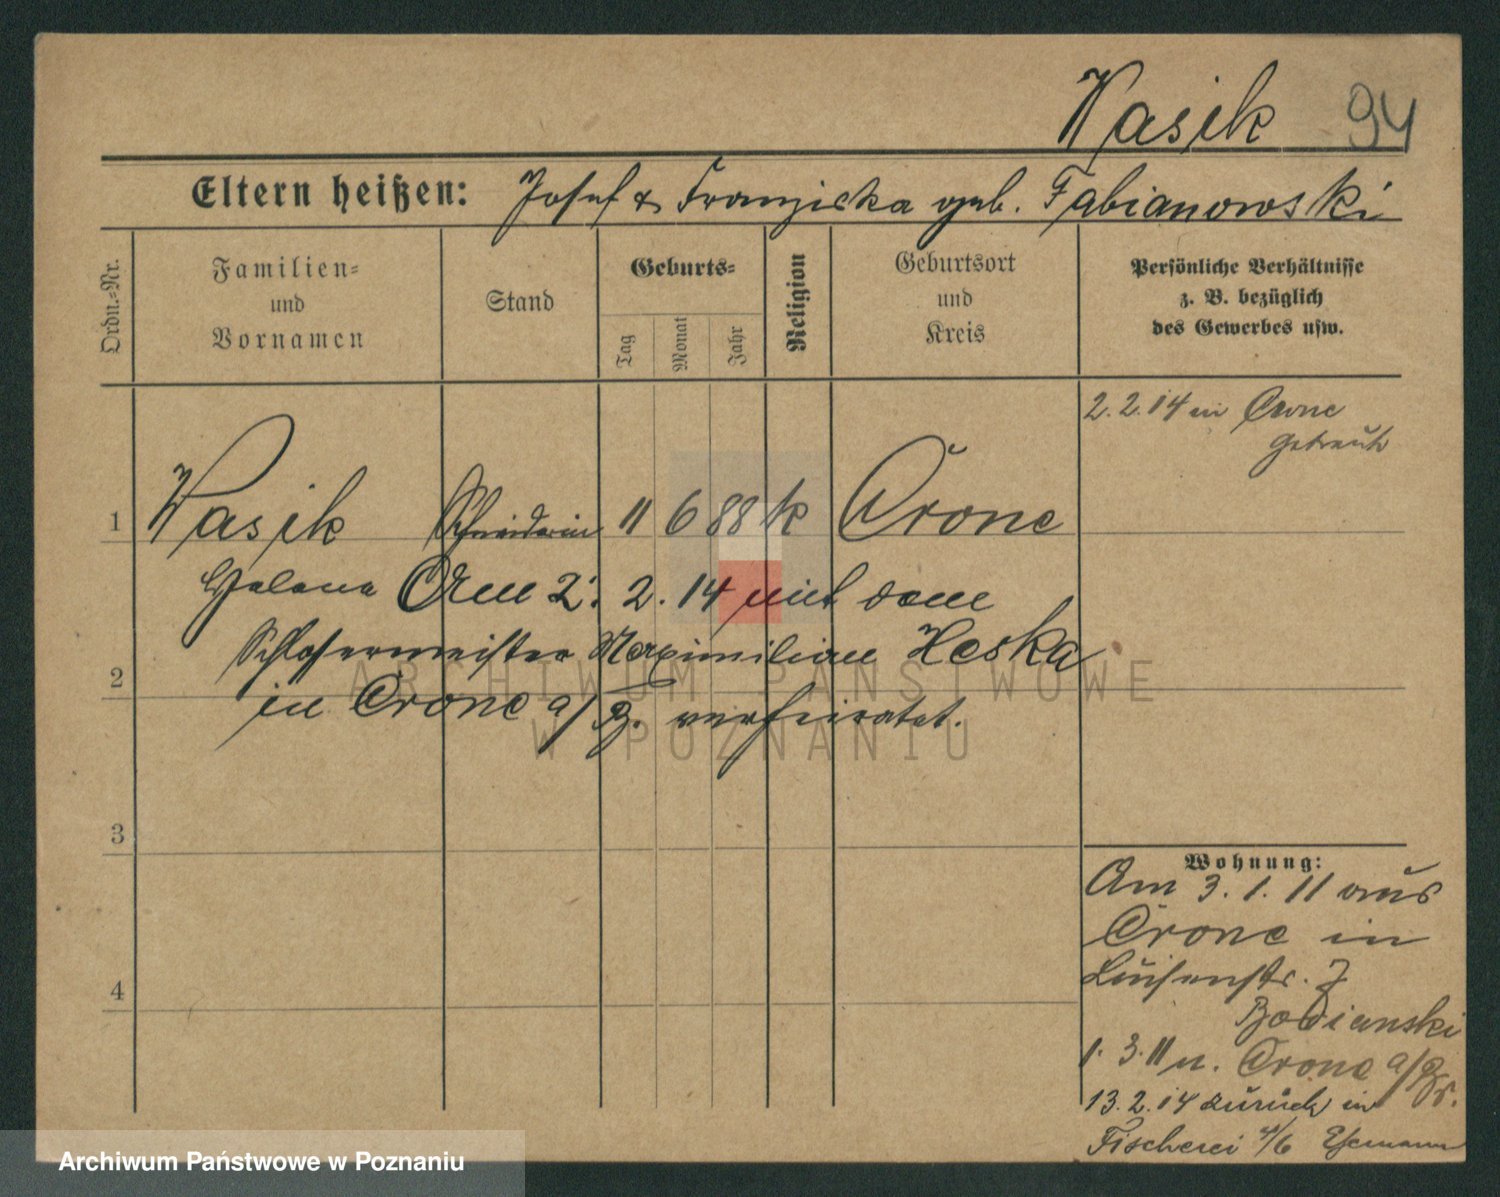 Wasik 94
Eltern heißen: Josef & Franziska geb. Fabianowski
Ordn.-Nr.
Familien-
und
Vornamen
Stand
Geburts-
Tag
Monat
Jahr
Religion
Geburtsort
und
Kreis
Persönliche Verhältnisse
z. B. bezüglich
des Gewerbes usw.
2.2.14 in Crone
getraut
1 Wasik Schneiderin 11 6 88 k Crone
Helene Am 2. 2. 14 mit dem
Schlossermeister Maximilian Heska
2
in Crone a/B. verheiratet.
3
4
Wohnung:
Am 3.1.11 aus
Crone in
Luisenstr. 7
1.3.11 n. Crone a/Br.
13.2.14 zurück in
Fischerei 4/6 Ehemann
ARCHIWUM PAŃSTWOWE
W POZNANIU
Archiwum Państwowe w Poznaniu